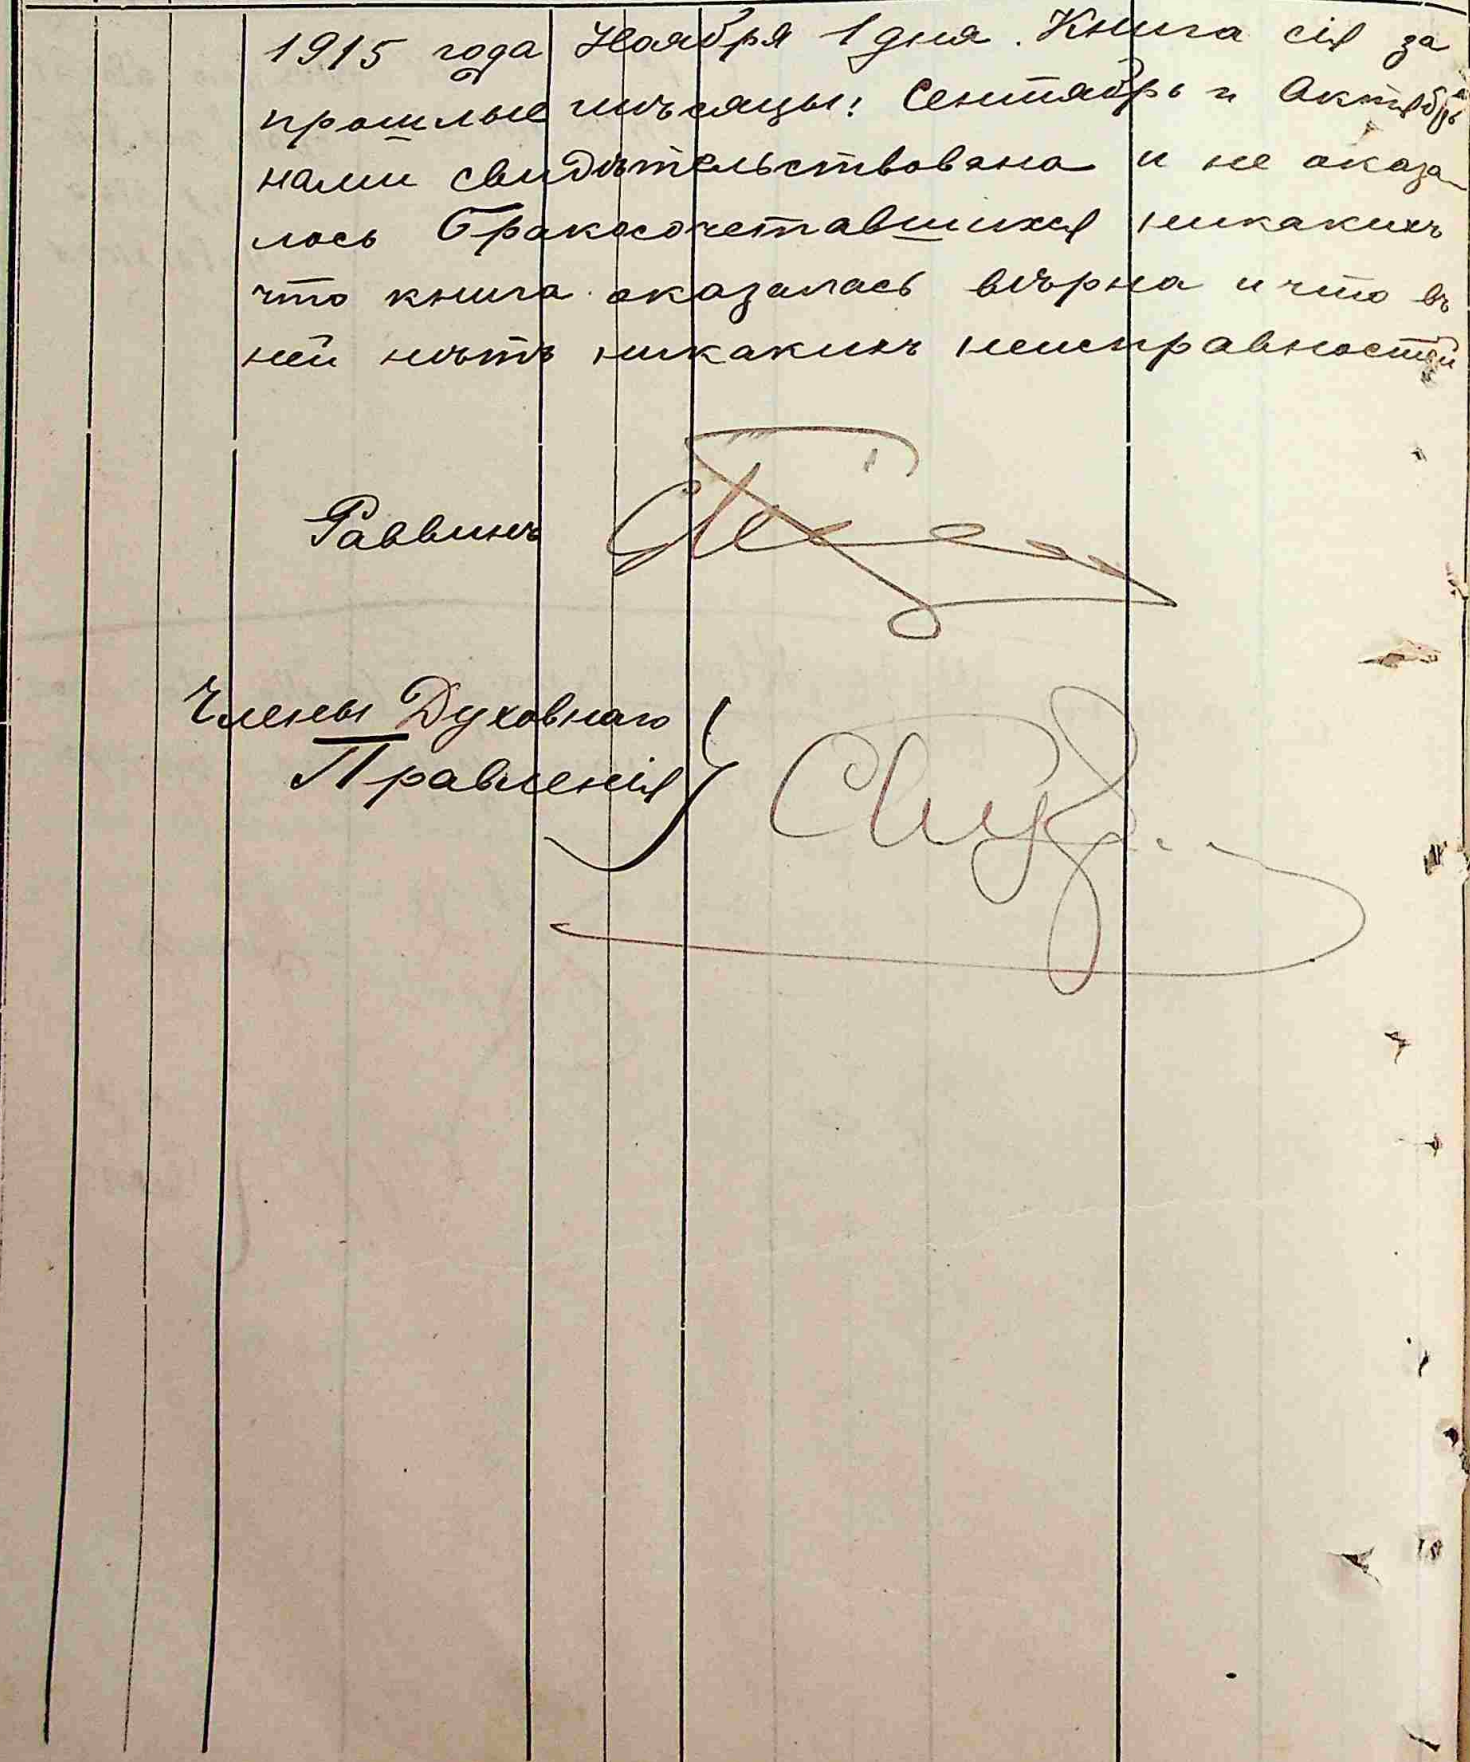 1915 года Ноября 1 дня. Книга сія за
прошлые мѣсяцы: Сентябрь и Октябрь
нами свидѣтельствована и не оказа
лось Бракосочетавшихся никакихъ
что книга оказалась вѣрна и что въ
ней нѣтъ никакихъ неисправностей
Раввинъ
Члены Духовнаго
Правленія